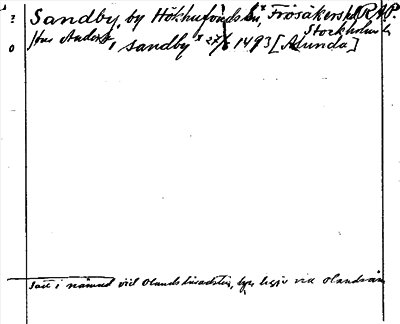 Sandby, by Hökhufvuds sn, Frösåkers hd RAP.
Stockholms l
Hus Anders, i sandby 27/6 1493 [Alunda]
satt i nämnd vid Olands häradsting, byn ligger vid Olands